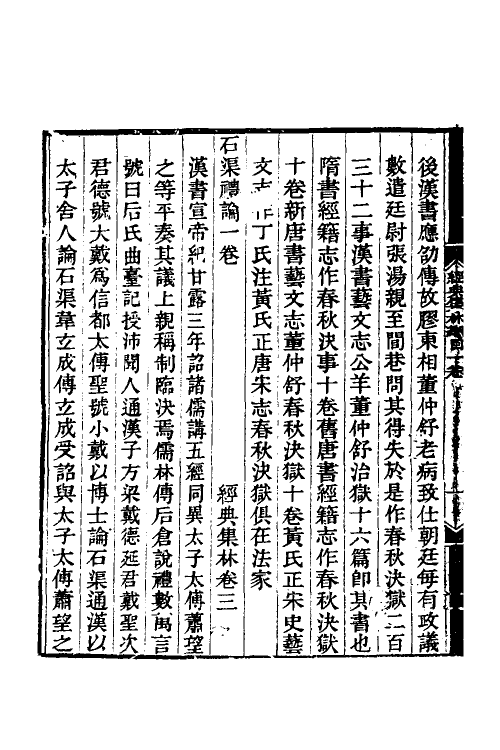 後漢書應劭傳故膠東相董仲舒老病致仕朝廷每有政議
數遣廷尉張湯親至閭巷問其得失於是作春秋決獄二百
三十二事漢書藝文志公羊董仲舒治獄十六篇卽其書也
隋書經籍志作春秋決事十卷舊唐書經籍志作春秋決獄
十卷新唐書藝文志董仲舒春秋決獄十卷黃氏正宋史藝
文志作丁氏注黃氏正唐宋志春秋決獄俱在法家
石渠禮論一卷 經典集林卷三
漢書宣帝紀甘露三年詔諸儒講五經同異太子太傅蕭望
之等平奏其議上親稱制臨決焉儒林傳后倉說禮數萬言
號曰后氏曲臺記授沛聞人通漢子方梁戴德延君戴聖次
君德號大戴爲信都太傅聖號小戴以博士論石渠通漢以
太子舍人論石渠韋玄成傳玄成受詔與太子太傅蕭望之